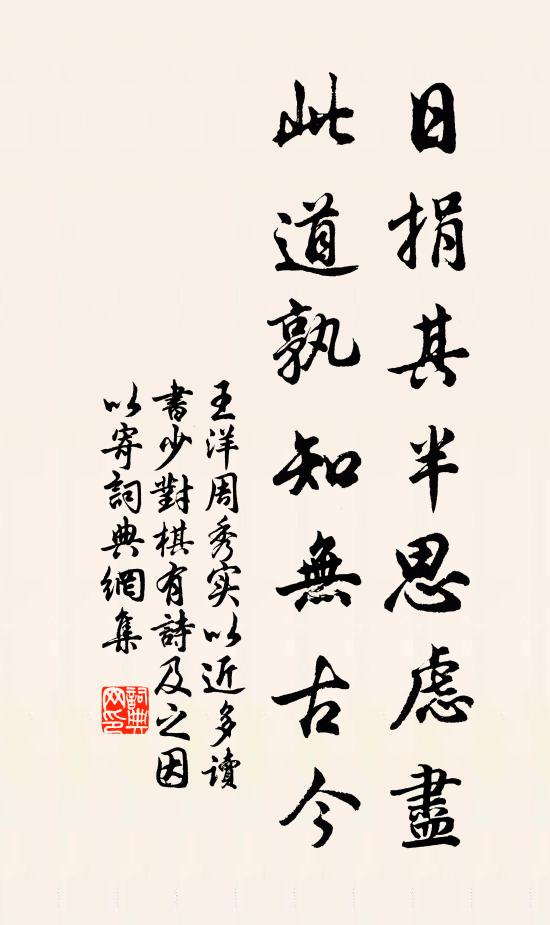 日捐其半思慮盡
此道孰知無古今
王洋周秀实以近多讀
書少對棋有詩及之因
以寄詞典網集
詞典
网印